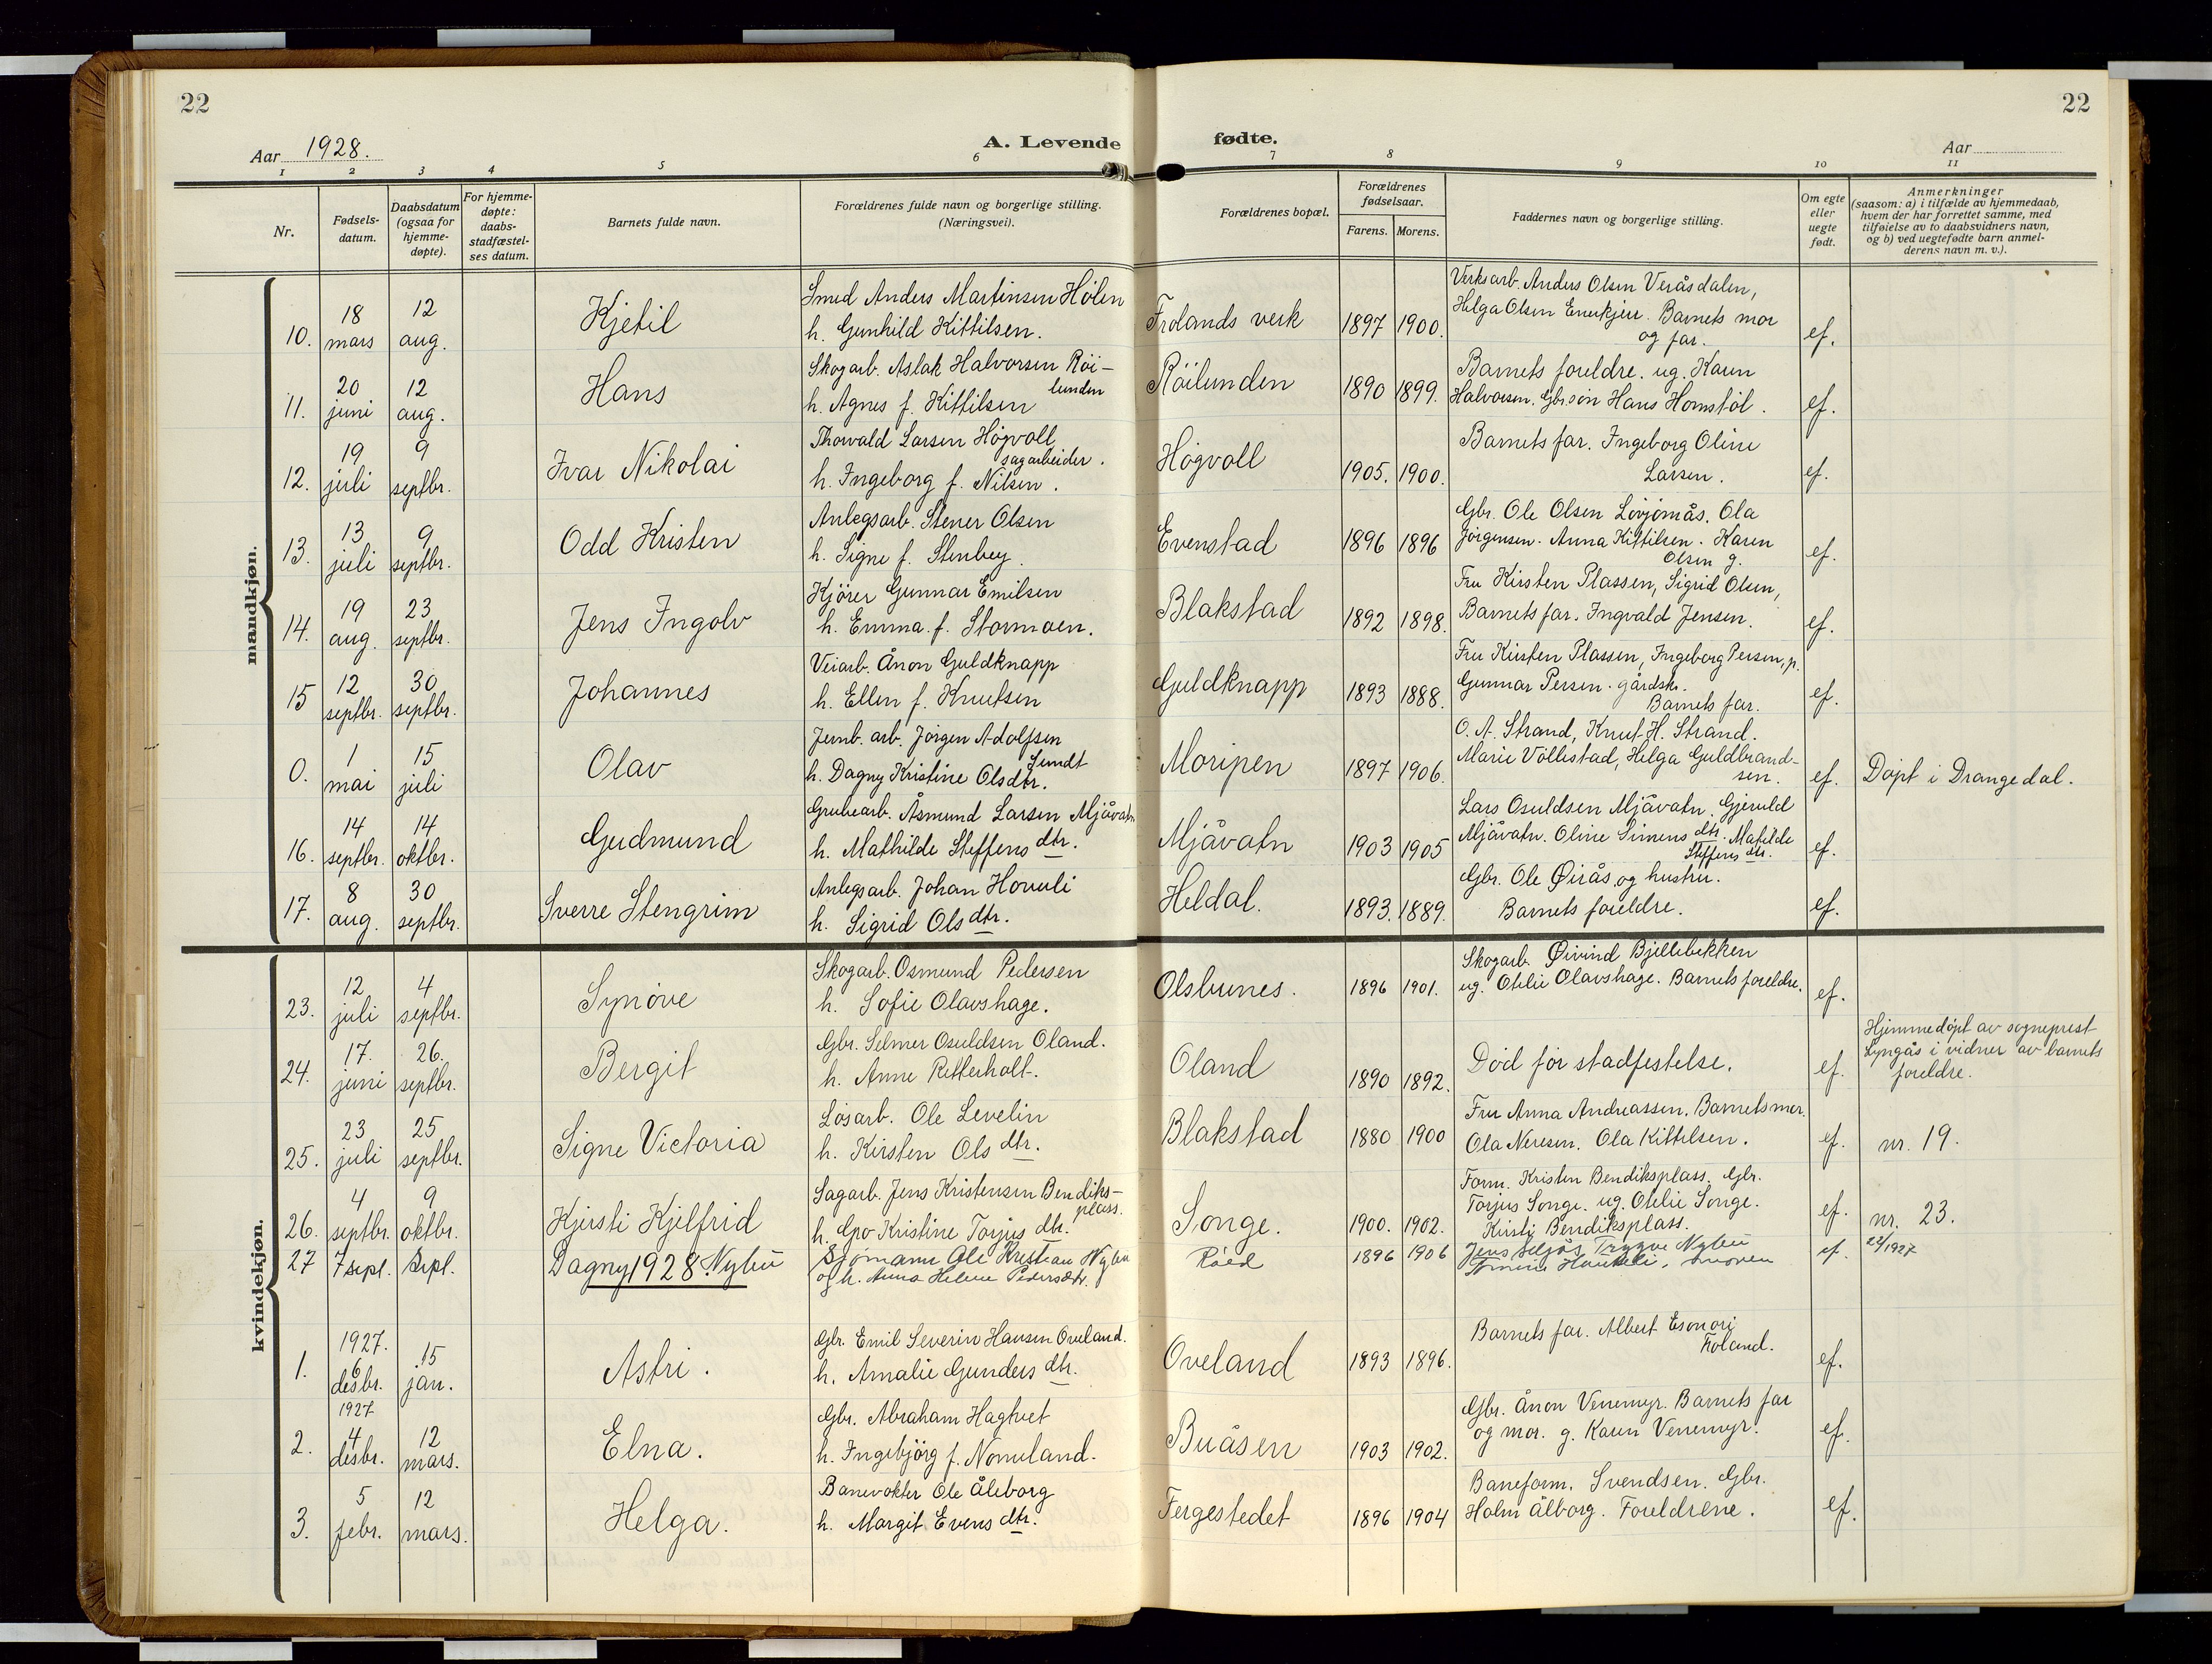 22
22
Aar 1928.
A. Levende
fødte.
Aar
1 2 3 4 5 6 7 8 9 10 11
Nr.
Fødsels-
datum.
Daabsdatum
(ogsaa for
hjemme-
døpte).
For hjemme-
døpte:
daabs-
stadfæstel-
ses datum.
Barnets fulde navn.
Forældrenes fulde navn og borgerlige stilling.
(Næringsvei).
Forældrenes bopæl.
Forældrenes
fødselsaar.
Farens. Morens.
Faddernes navn og borgerlige stilling.
Om egte
eller
uegte
født.
Anmerkninger
(saasom: a) i tilfælde av hjemmedaab,
hvem der har forrettet samme, med
tilføielse av to daabsvidners navn,
og b) ved uegtefødte barn anmel-
derens navn m. v.).
mandkjøn.
10. 18 mars 12 aug. Kjetil
Smed Anders Martinsen Hølen
h. Gunhild Kittilsen.
Frolands verk 1897 1900.
Verksarb. Anders Olsen Veråsdalen,
Helga Olsen Enerkjær. Barnets mor
og far.
ef.
11. 20 juni 12 aug. Hans
Skogarb. Aslak Halvorsen Røi-
lunden
h. Agnes f. Kittilsen
Røilunden 1890 1899.
Barnets foreldre. ug. Karen
Halvorsen. Gbr.søn Hans Homstøl.
ef.
12. 19 juli 9 septbr. Ivar Nikolai
Thorvald Larsen Høgvoll
sagarbeider.
h. Ingeborg f. Nilsen.
Høgvoll 1905. 1900.
Barnets far. Ingeborg Oline
Larsen.
ef.
13. 13 juli 9 septbr. Odd Kristen
Anlegsarb. Stener Olsen
h. Signe f. Stenbey.
Evenstad 1896 1896
Gbr. Ole Olsen Løvjomås. Ola
Jørgensen. Anna Kittilsen. Karen
Olsen g.
ef.
14. 19 aug. 23 septbr. Jens Ingolv
Kjører Gunnar Emilsen
h. Emma f. Stormoen.
Blakstad 1892 1898.
Fru Kirsten Plassen, Sigrid Olsen,
Barnets far. Ingvald Jensen.
ef.
15 12 septbr. 30 septbr. Johannes
Veiarb. Ånon Guldknapp
h. Ellen f. Knutsen
Guldknapp 1893 1888.
Fru Kirsten Plassen, Ingeborg Persen, p.
Gunnar Persen. gårdsk.
Barnets far.
ef.
0. 1 mai 15 juli Olav
Jernb. arb. Jørgen Adolfsen
Sundt
h. Dagny Kristine Olsdtr.
Moripen 1897 1906.
O. A. Strand, Knut H. Strand.
Marie Vøllestad, Helga Guldbrand-
sen.
ef. Døpt i Drangedal.
16. 14 septbr. 14 oktbr. Gudmund
Grubearb. Åsmund Larsen Mjåvatn
h. Mathilde Steffens dtr.
Mjåvatn 1903 1905
Lars Osuldsen Mjåvatn. Gjeruld
Mjåvatn. Oline Simens dtr. Matilde
Steffens dtr.
ef.
17. 8 aug. 30 septbr. Sverre Stengrim
Anlegsarb. Johan Hovuli
h. Sigrid Ols dtr.
Heldal. 1893. 1889.
Gbr. Ole Øiås og hustru.
Barnets foreldre.
ef.
kvindekjøn.
23. 12 juli 4 septbr. Synøve
Skogarb. Osmund Pedersen
h. Sofie Olavshage.
Olsbunes. 1896 1901.
Skogarb. Øivind Bjellebekken
ug. Otelie Olavshage. Barnets foreldre.
ef.
24. 17. juni 26. septbr. Bergit
Gbr. Selmer Osuldsen Oland.
h. Anne Retterholt.
Oland 1890 1892.
Død før stadfestelse.
ef.
Hjemmedøpt av sogneprest
Lyngås i vidner av barnets
foreldre.
25. 23 juli 25 septbr. Signe Victoria
Løsarb. Ole Levelin
h. Kirsten Ols dtr.
Blakstad 1880 1900
Fru Anna Andreassen. Barnets mor.
Ola Neresen. Ola Kittelsen.
ef. nr. 19.
26. 4 septbr. 9 oktbr. Kjersti Kjelfrid
Sagarb. Jens Kristensen Bendiks-
plass.
h. Gro Kristine Torjus dtr.
Songe. 1900. 1902.
Form. Kristen Bendiksplass. Gbr.
Torjus Songe. ug. Otelie Songe.
Kirsti Bendiksplass.
ef. nr. 23.
27 7 sept. sept. Dagny 1928 Nybu
Sjømann Ole Kristian Nybu
og h. Anna Helene Pedersdtr.
Råed 1896 1906
Jens Seljås Trygve Nybu
ef. 22/1927
1. 1927. 6 desbr. 15 jan. Astri.
Gbr. Emil Severin Hansen Oveland.
h. Amalie Gunders dtr.
Oveland 1893 1896.
Barnets far. Albert Esonori
Froland.
ef.
2. 1927 4 desbr. 12 mars. Elna.
Gbr. Abraham Hagtvet
h. Ingebjørg f. Nomeland.
Buåsen 1903 1902.
Gbr. Ånon Venemyr. Barnets far
og mor. g. Karen Venemyr.
ef.
3. 5 febr. 12 mars. Helga.
Banevokter Ole Åleborg
h. Margit Evens dtr.
Fergestedet 1896 1904
Baneform. Svendsen. Gbr.
Holm Ålborg. Foreldrene.
ef.